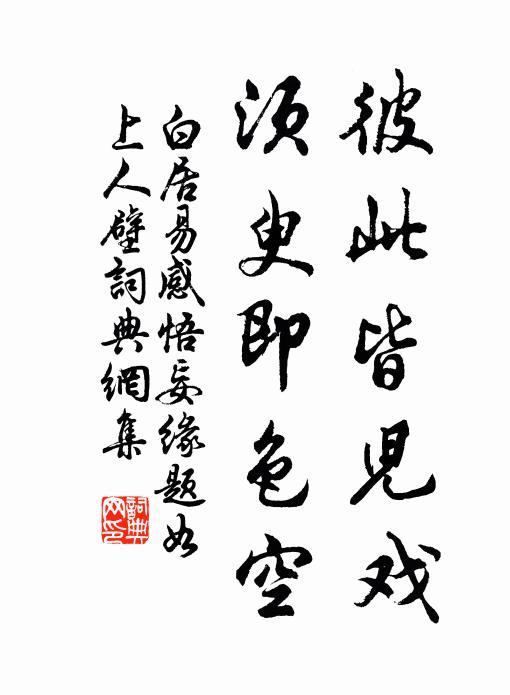 彼此皆兒戏
須臾即色空
白居易感悟妄緣題如
上人壁詞典網集
詞典
网印